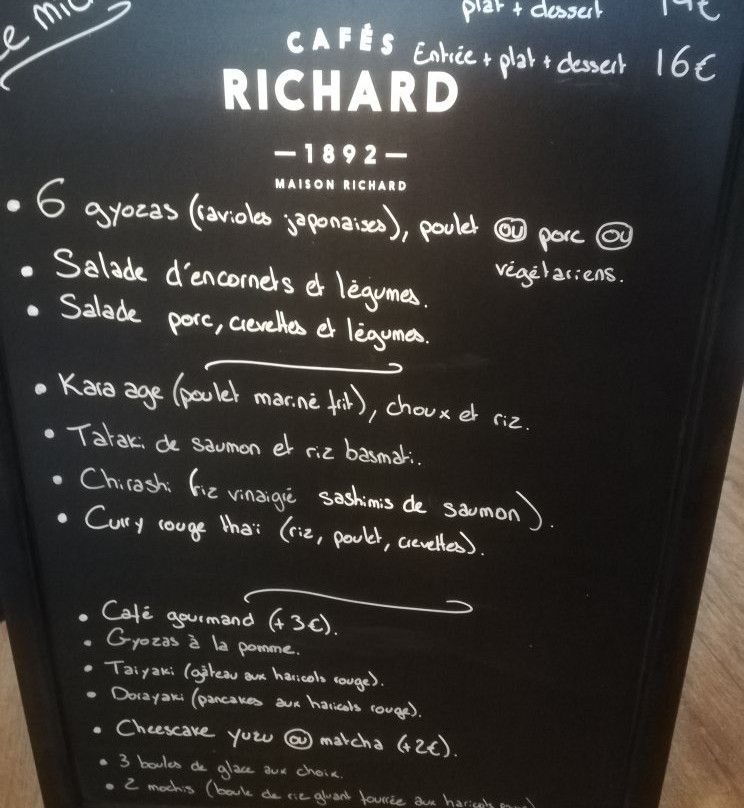 plat + dessert 14€
CAFÉS
Entrée + plat + dessert 16€
RICHARD
—1892—
MAISON RICHARD
• 6 gyozas (ravioles japonaises), poulet ou porc ou
végétariens.
• Salade d'encornets et légumes.
• Salade porc, crevettes et légumes.
• Kara age (poulet mariné frit), choux et riz.
• Tataki de saumon et riz basmati.
• Chirashi (riz vinaigré sashimis de saumon).
• Curry rouge thaï (riz, poulet, crevettes).
• Café gourmand (+3€).
• Gyozas à la pomme.
• Taiyaki (gâteau aux haricots rouge).
• Dorayaki (pancakes aux haricots rouge).
• Cheescake yuzu ou matcha (+2€).
• 3 boules de glace aux choix.
• 2 mochis (boule de riz gluant fourrée aux haricots